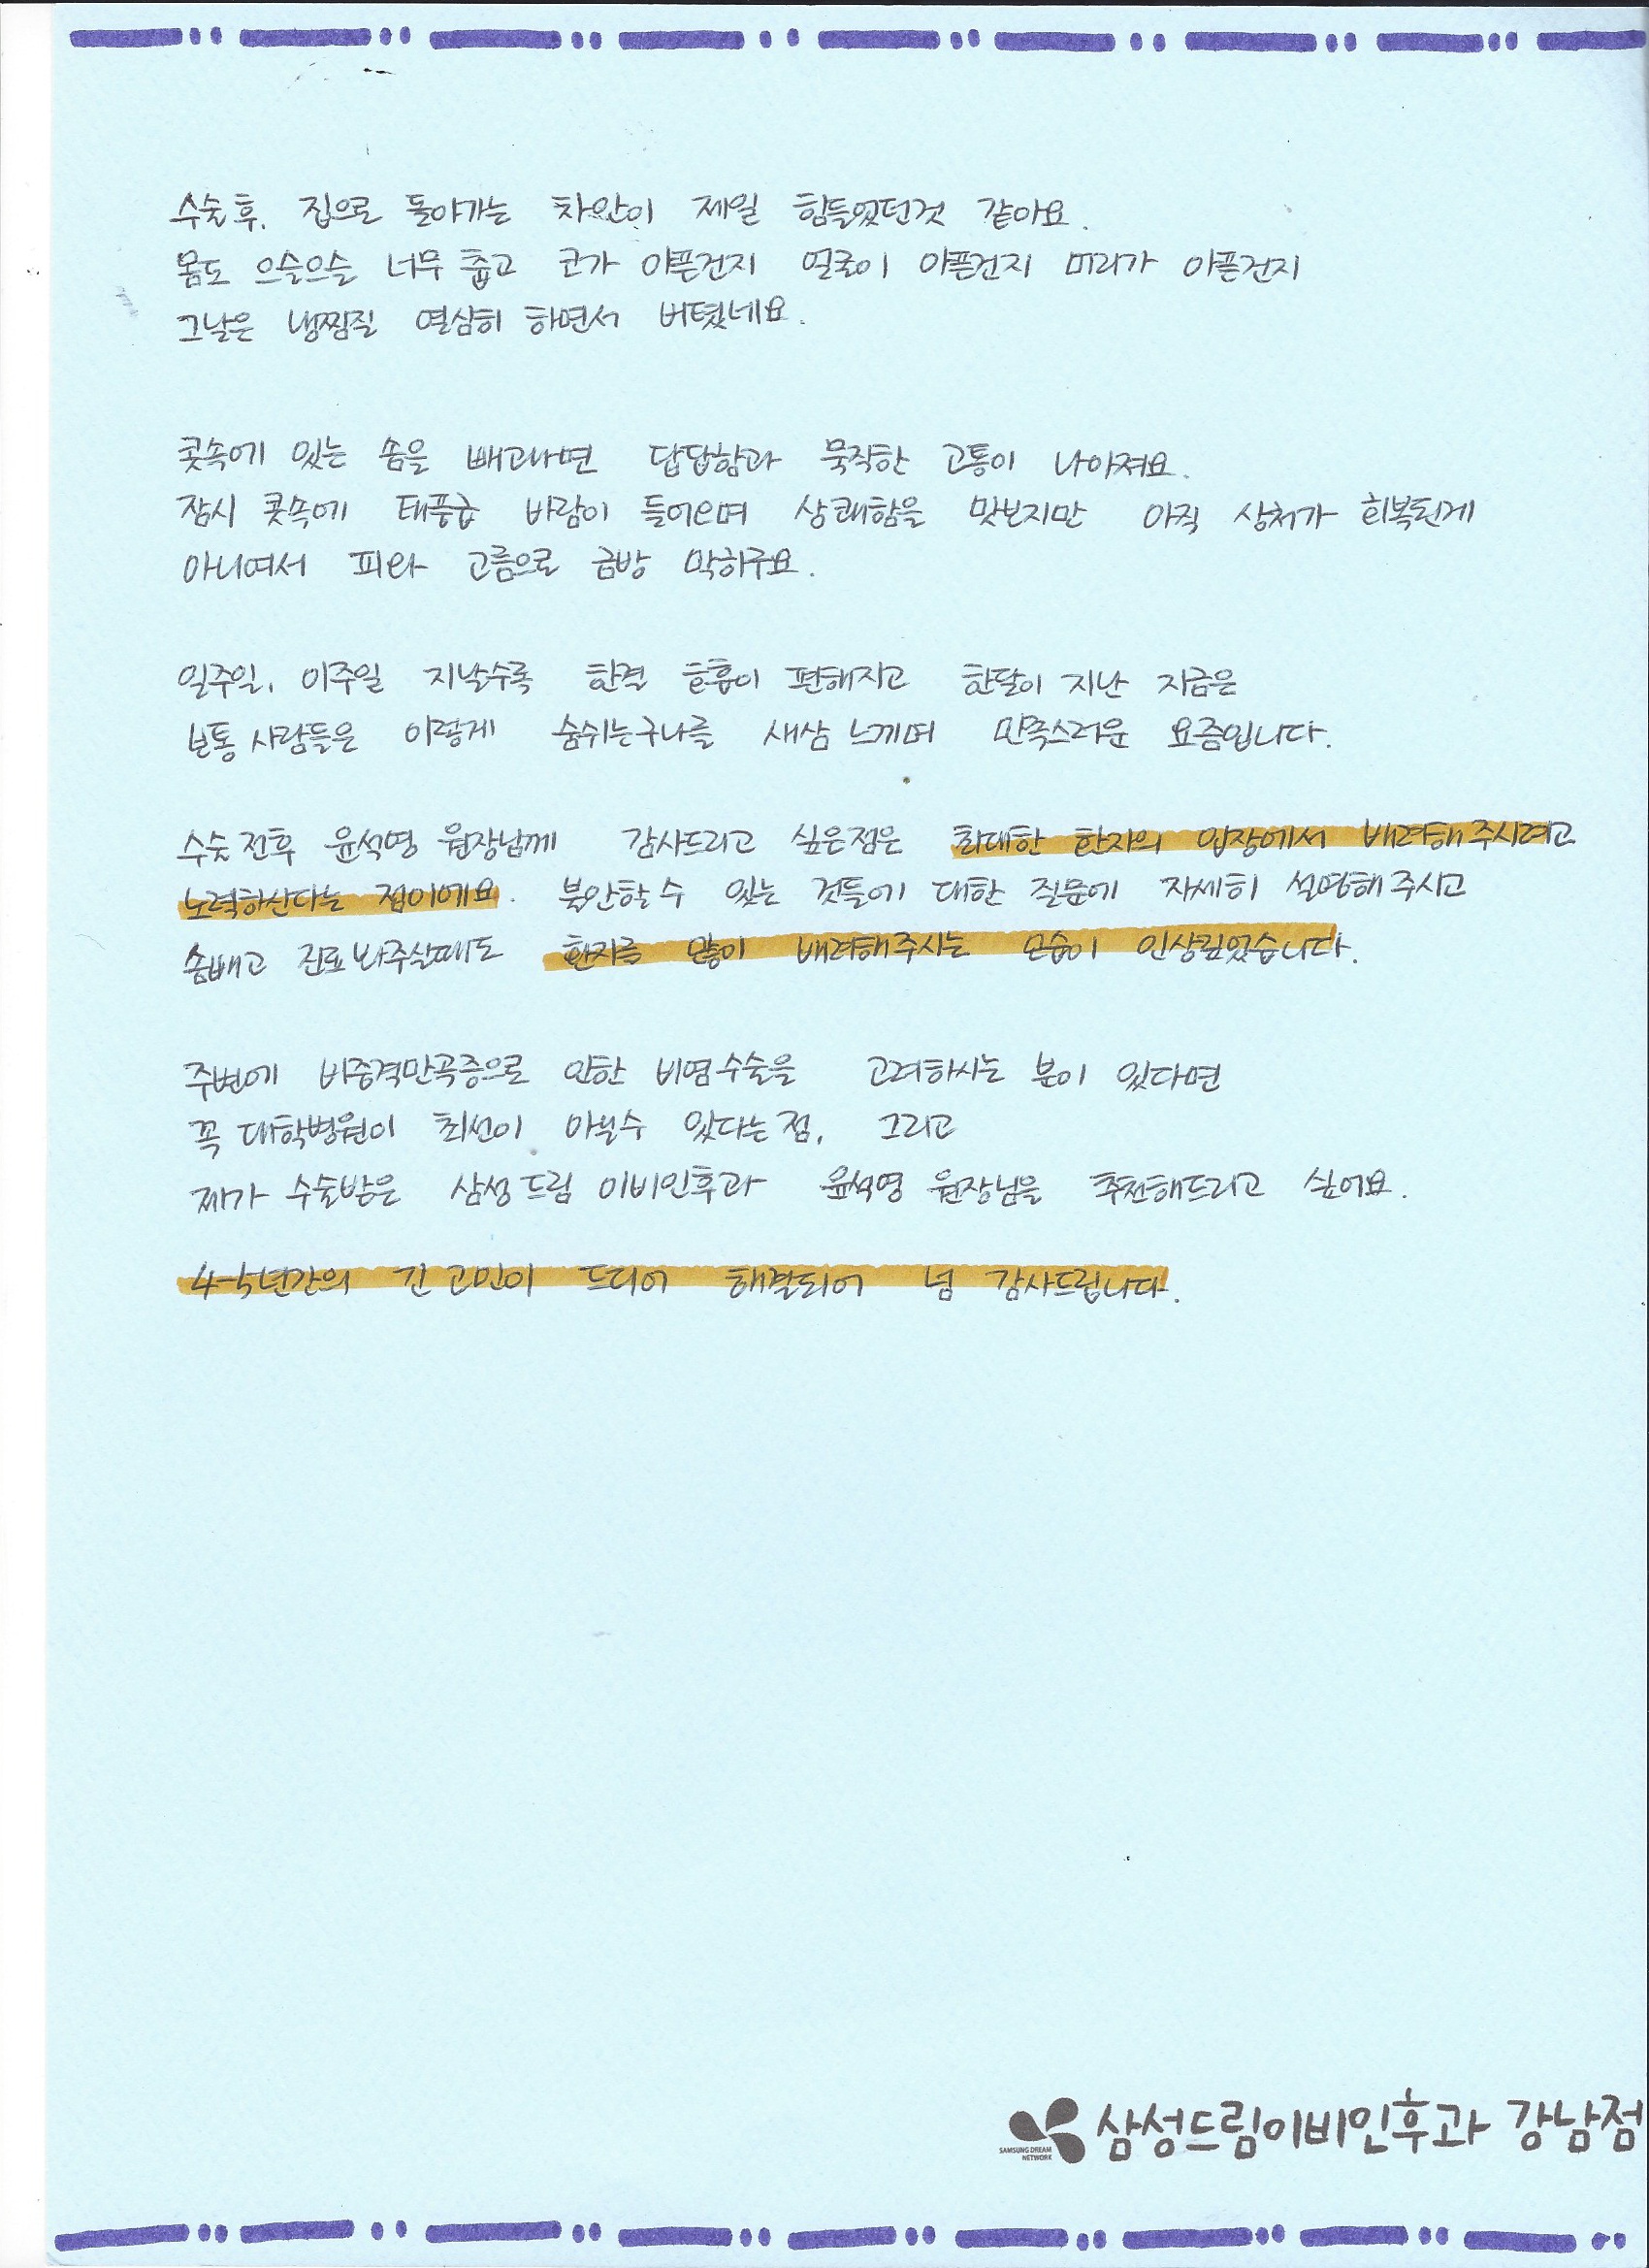 수술후, 집으로 돌아가는 차안이 제일 힘들었던것 같아요.
몸도 으슬으슬 너무 춥고 코가 아픈건지 얼굴이 아픈건지 머리가 아픈건지
그날은 냉찜질 열심히 하면서 버텼네요.
콧속에 있는 솜을 빼고나면 답답함과 묵직한 고통이 나아져요.
잠시 콧속에 태풍급 바람이 들어오며 상쾌함을 맛보지만 아직 상처가 회복된게
아니여서 피와 고름으로 금방 막히구요.
일주일, 이주일 지날수록 한결 호흡이 편해지고 한달이 지난 지금은
보통 사람들은 이렇게 숨쉬는구나를 새삼 느끼며 만족스러운 요즘입니다.
수술 전후 윤석영 원장님께 감사드리고 싶은점은 최대한 환자의 입장에서 배려해 주시려고
노력하신다는 점이에요. 불안할수 있는 것들에 대한 질문에 자세히 설명해 주시고
솜빼고 진료 봐주실때도 환자를 많이 배려해주시는 모습이 인상깊었습니다.
주변에 비중격만곡증으로 인한 비염수술을 고려하시는 분이 있다면
꼭 대학병원이 최선이 아닐수 있다는 점, 그리고
제가 수술받은 삼성드림 이비인후과 윤석영 원장님을 추천해드리고 싶어요.
4-5년간의 긴 고민이 드디어 해결되어 넘 감사드립니다.
삼성드림이비인후과 강남점
SAMSUNG DREAM
NETWORK